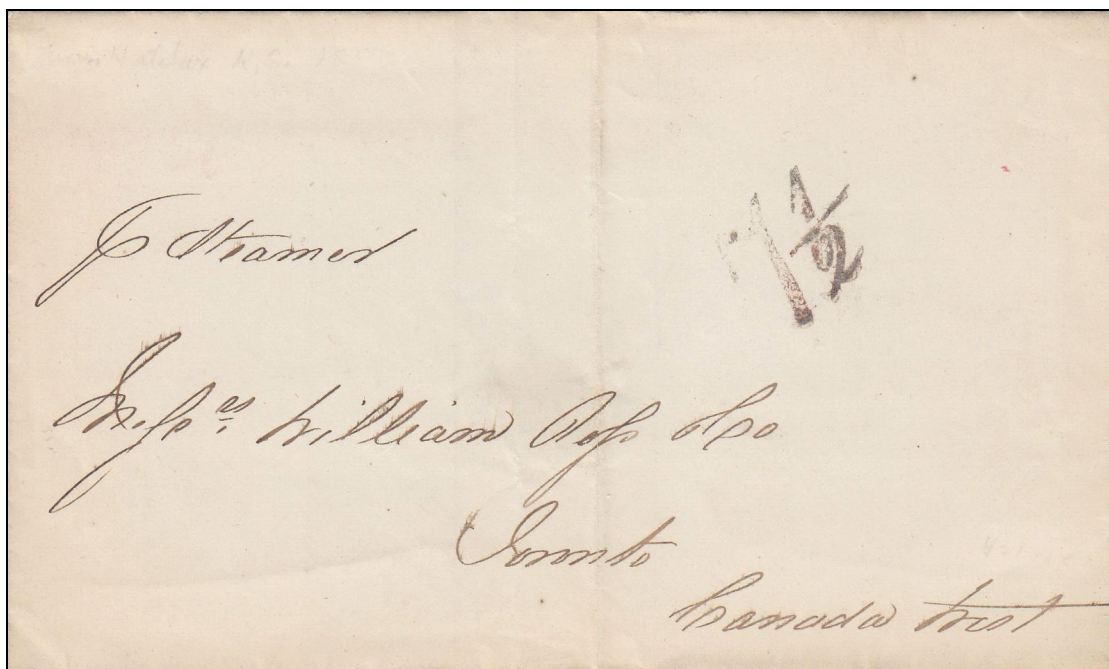 Halifax N.S.
7½
P Steamer
Messrs. William Ross & Co
Toronto
Canada West